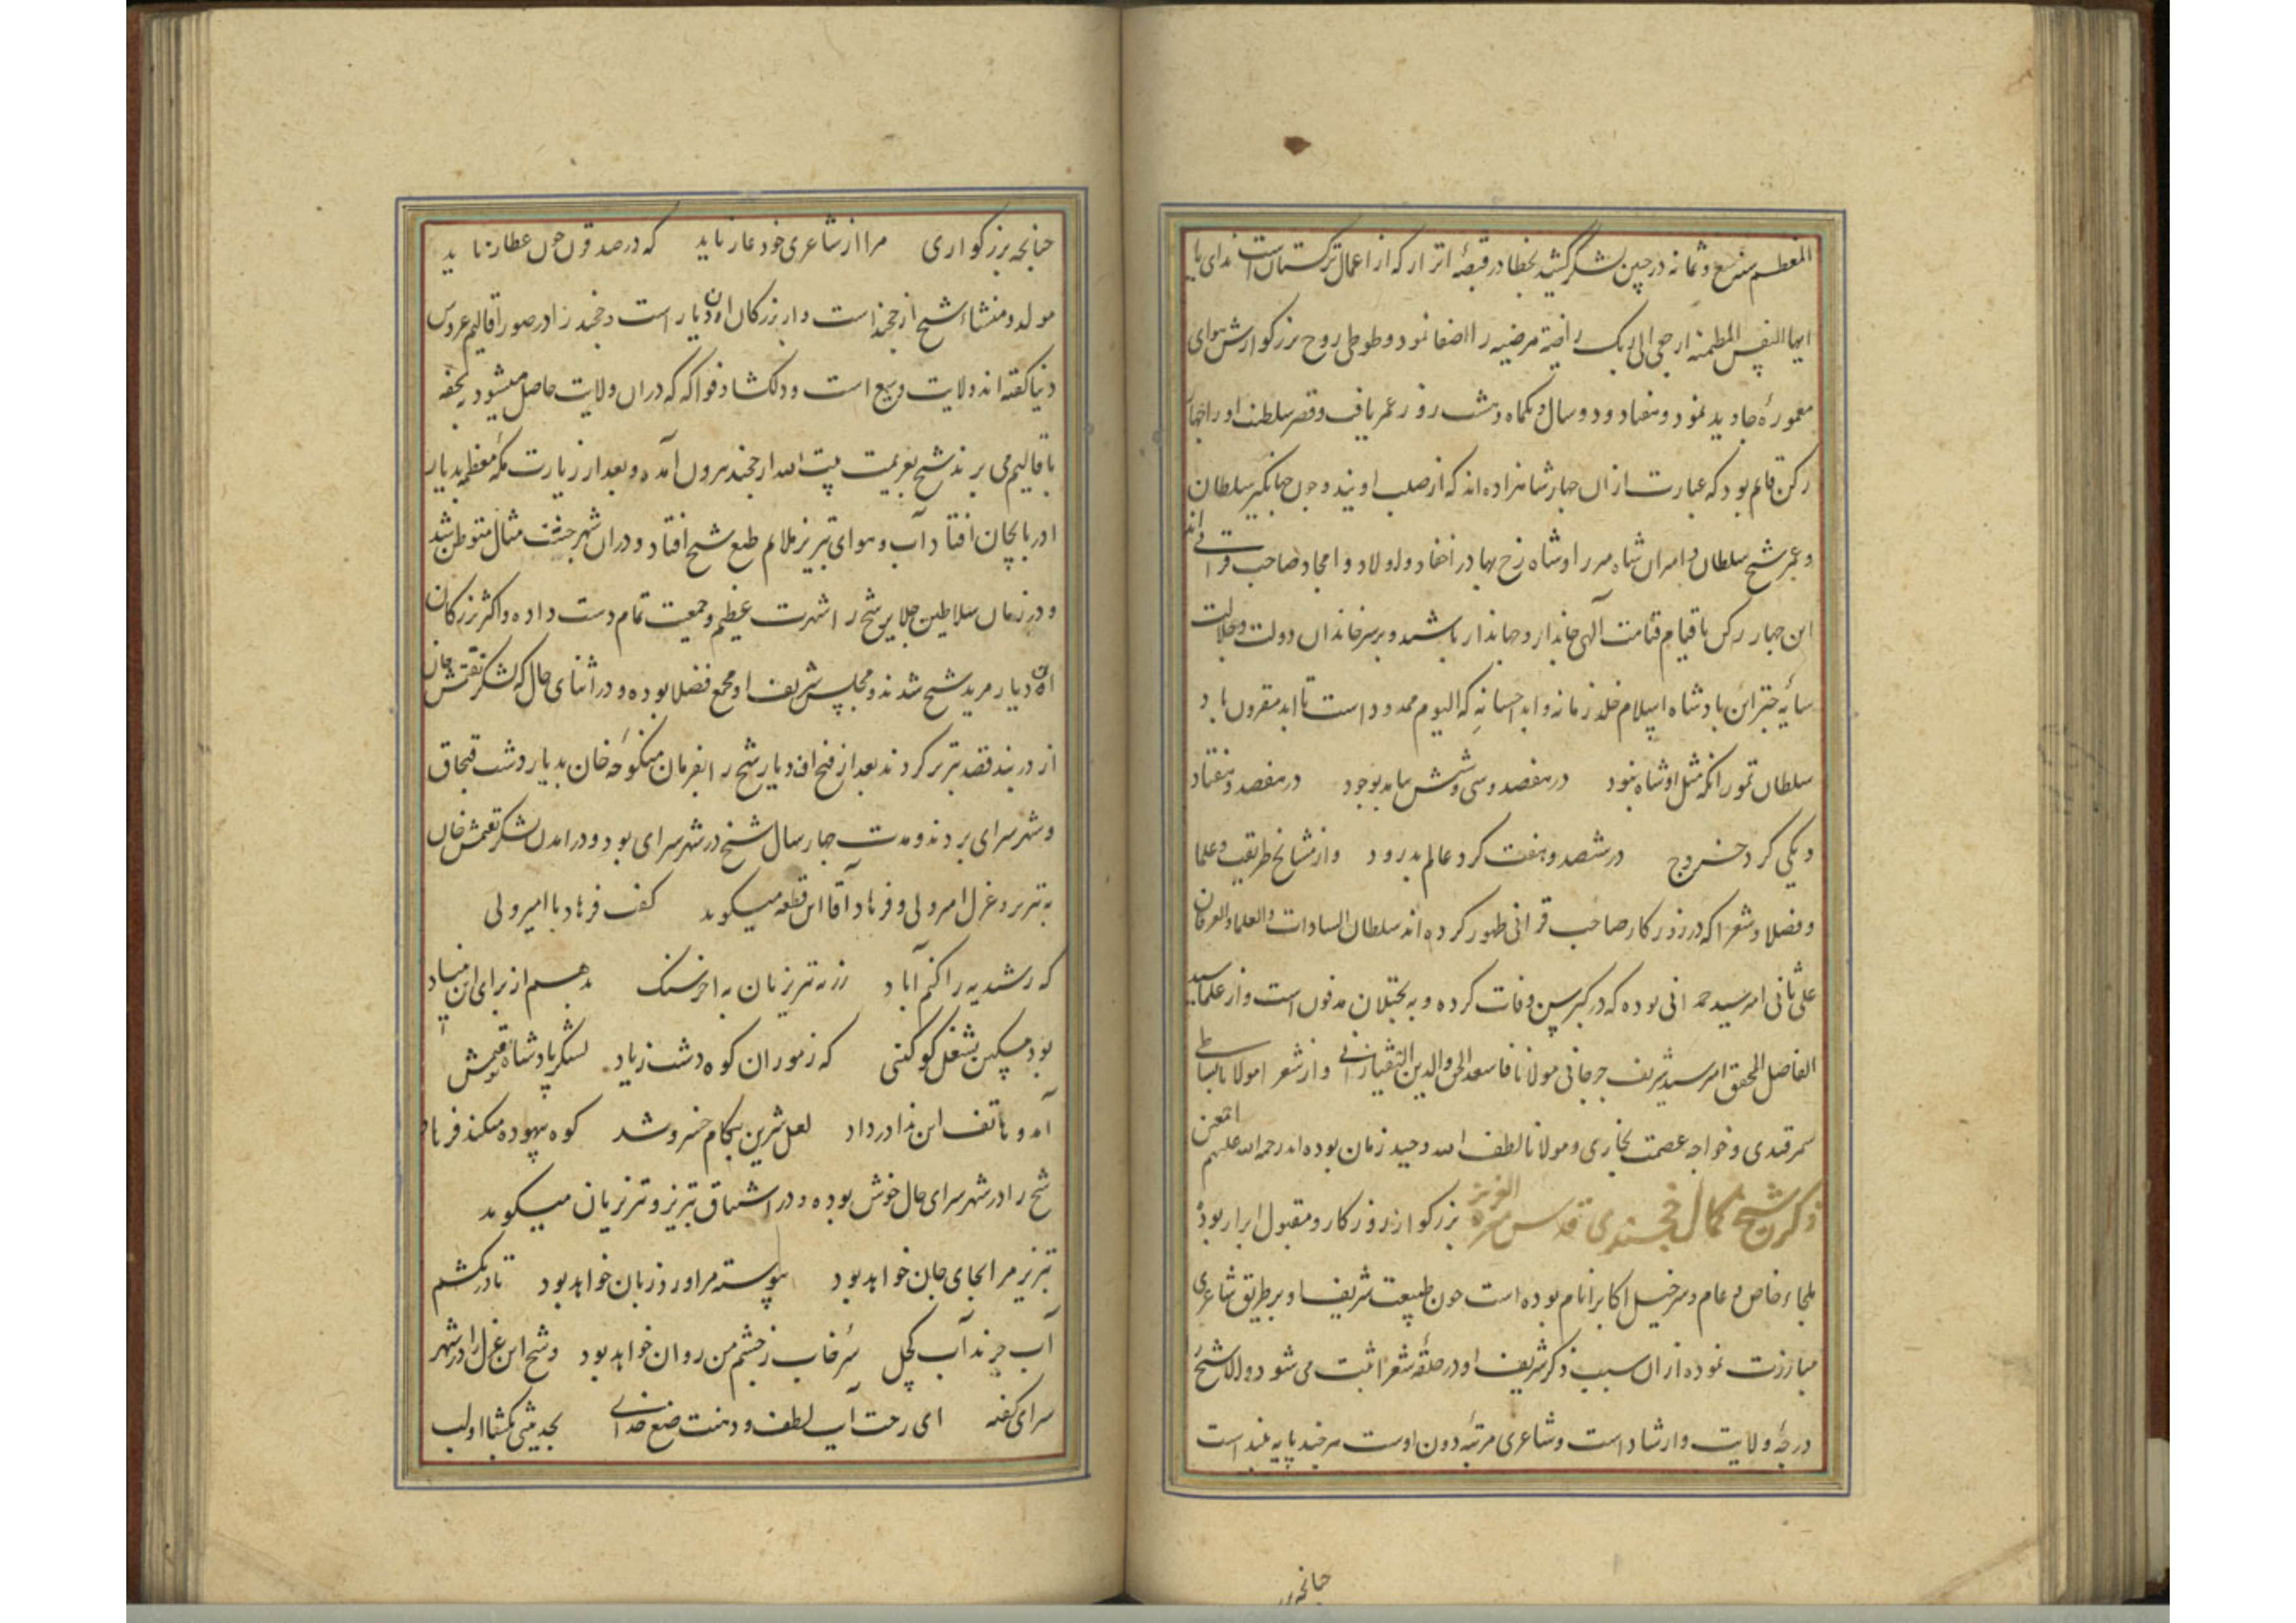 المعظم سنه سبع و ثمانه در حین لشکر کشیدن بخطا در قصبهٔ اترار که از اعمال ترکستان است ندای یا
ایها النفس المطمئنه ارجعی الی ربک راضیة مرضیه را اصغا نمود و طوطی روح بزرگوارش هوای
معمورهٔ جاوید نمود و هفتاد و دو سال و یکماه و هشت روز عمر یافت و قصر سلطنت او را چهار
رکن قایم بود که عبارت از ان چهار شاهزاده اند که از صلب اویند و چون جهانگیر سلطان
و عمر شیخ سلطان و امیران شاه میرزا و شاه رخ بهادر احفاد و اولاد و امجاد صاحب قرانی اند
این چهار رکن تا قیام قیامت آلهی جاندار و جهاندار باشند و بر سر خاندان دولت و جلالت
سایه پادشاه اسلام خلد زمانه و ابد احسانه که الیوم ممدود است تا ابد مقرون باد
سلطان تمور انکه مثل او شاه نبود در هفصد و سی و شش بیامد بوجود در هفصد و هفتاد
و یکی کرد خروج در هشصد و هفت کرد عالم بدرود و از مشایخ طریقت و علما
و فضلا و شعرا که در روزکار صاحب قرانی ظهور کرده اند سلطان السادات والعلما والعرفان
علی ثانی امیر سید همدانی بوده که در کبر سن وفات کرده و به ختلان مدفون است و از علما سید
الفاضل المحقق امیر سید شریف جرجانی مولانا سعد الحق والدین التفتازانی و از شعرا مولانا بساطی
سمرقندی و خواجه عصمت بخاری و مولانا لطف الله وحید زمان بوده اند رحمه الله علیهم اجمعین
ذکر شیخ کمال خجندی قدس سره العزیز بزرکوار روزکار و مقبول ابرار بود
ملجاء خاص و عام و سرخیل اکابر انام بوده است چون طبیعت شریف او بر طریق شاعری
مبارزت نموده از ان سبب ذکر شریف او در حلقهٔ شعرا ثبت می شود والا شیخ
درجهٔ ولایت و ارشاد است و شاعری مرتبهٔ دون اوست هرچند پایه بلند است
چنانچه بزر
چنانچه بزرکواری مرا از شاعری خود عار ناید که در صد قرن چون عطار ناید
مولد و منشاء شیخ از خجند است و از بزرکان ان دیار است و خجند را در صور اقالیم عروس
دنیا کفته اند ولایت وسیع است و دلکشا و فواکه که در ان ولایت حاصل میشود بتحفه
باقالیم می برند شیخ بعزیمت بیت الله از خجند بیرون آمده و بعد از زیارت مکه معظمه بدیار
اذربایجان افتاد آب و هوای تبریز ملایم طبع شیخ افتاد و در ان شهر جنت مثال متوطن شد
و در زمان سلاطین جلایر شیخ را شهرت عظیم و جمعیت تمام دست داده و اکثر بزرکان
ان دیار مرید شیخ شدند و مجلس شریف او مجمع فضلا بوده و در اثنای حال که لشکر تقتمش خان
از دربند قصد تبریز کردند بعد از فتح ان دیار شیخ را بفرمان منکوحه خان بدیار دشت قبچاق
و شهر سرای بردند و مدت چهار سال شیخ در شهر سرای بود و در امدن لشکر تقتمش خان
به تبریز و عزل امیر ولی و فرهاد آقا این قطعه میکوید کفت فرهاد با امیر ولی
که رشیدیه را کنم آباد زر به تبریزیان به اجر سنک بدهیم از برای این بنیاد
بود مسکین بشغل کوه کنی که ز موران کوه دشت زیاد لشکر پادشاه تقتمش
آمد و هاتف این ندا در داد لعل شیرین بکام خسرو شد کوه بیهوده میکند فرهاد
شیخ را در شهر سرای حال خوش بوده و در اشتیاق تبریز و تبریزیان میکوید
تبریز مرا بجای جان خواهد بود پیوسته مرا ورد زبان خواهد بود تا در نکشم
آب چرنداب کجل سرخاب ز چشم من روان خواهد بود و شیخ این غزل را در شهر
سرای کفته ای رحت آیت لطف و دهنت صنع خدای بحدیثی بکشا او لب